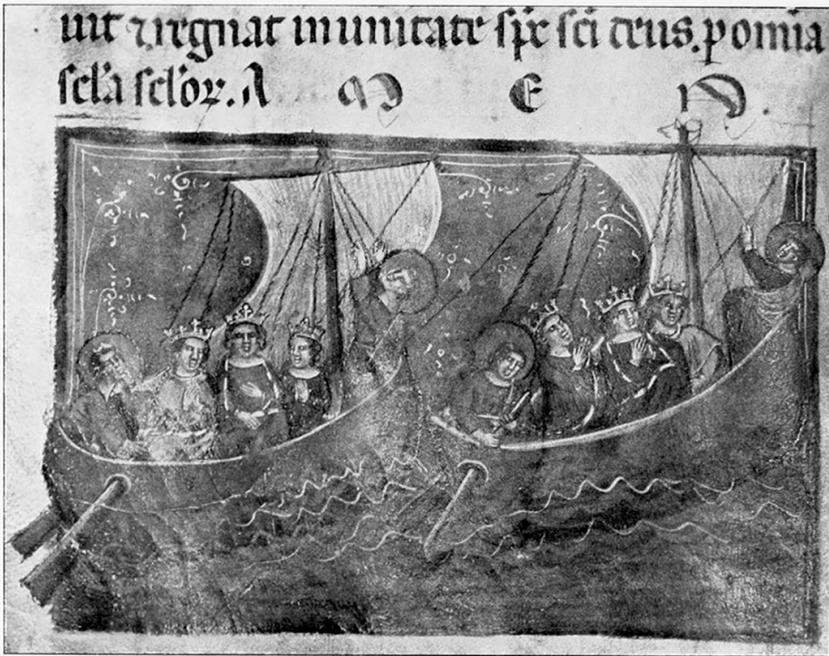 uit ⁊ regnat in unitate sp̄c sc̄i deus. p omīa
scl̄a scl̄oꝝ. A M E N.